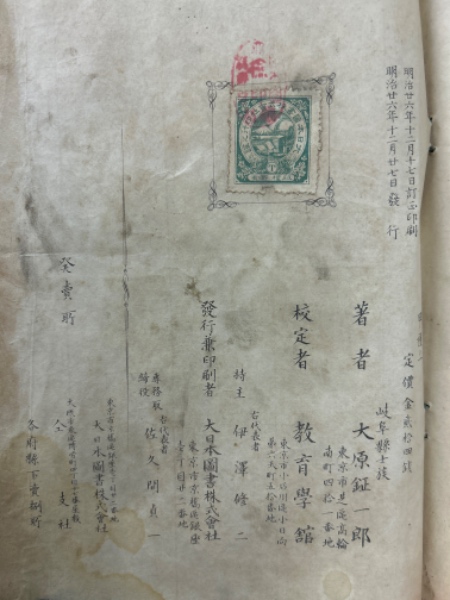 明治廿六年十二月十七日訂正印刷
明治廿六年十二月廿七日發行
定價金貳拾四錢
著者
岐阜縣士族
大原鉦一郎
東京市芝區高輪
南町四拾一番地
校定者
教育學館
東京市小石川區小日向
第六天町五拾番地
右代表者
持主 伊澤修二
發行兼印刷者
大日本圖書株式會社
東京市京橋區銀座
壹丁目廿二番地
右代表者
專務取
締役
佐久間貞一
發賣所
大日本圖書株式會社
仝 支社
各府縣下賣捌所